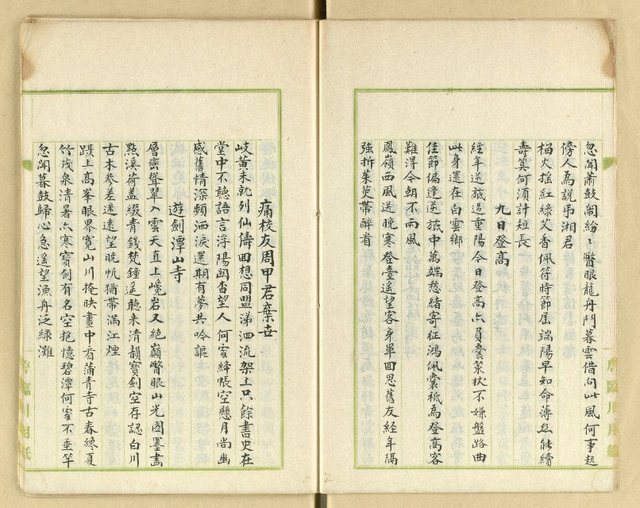 忽聞蕭鼓鬧紛〻瞥眼龍舟鬥暮雲借向此風何事起
傍人為說弔湘君
榴火搖紅綠艾香佩符時節屆端陽早知命薄絲能續
壽算何須計短長
九日登高
經年逆旅迓重陽今日登高亦員囊策杖不嫌盤路曲
此身還在白雲鄉
佳節偏逢逆旅中萬端愁緒寄征鴻佩囊祗為登高客
難得今朝不雨風
鳳嶺西風送晚寒登臺遙望客身單回思舊友經年隔
強折茱萸帶醉看
痛校友周甲君棄世
岐黃未就列仙儔回想同盟涕泗流架上只餘書史在
堂中不聽語言浮陽關杳望人何處絳帳空懸月尚幽
感舊情深頻洒淚還期有夢共吟謳
遊劍潭山寺
層巒聳翠入雲天直上巉岩又絕巔瞥眼山光圖墨畫
點溪荷蓋綴青錢梵鐘遙聽來清韻寶劍空存認白川
古木參差迷遠望晚帆猶帶滿江煙
躡上高峯眼界寬山川掩映畫中看蒲青寺古春綠夏
竹茂泉清暑亦寒寶劍有名空抱憶碧潭何處不垂竿
忽聞暮鼓歸心急遙望漁舟泛綠灘